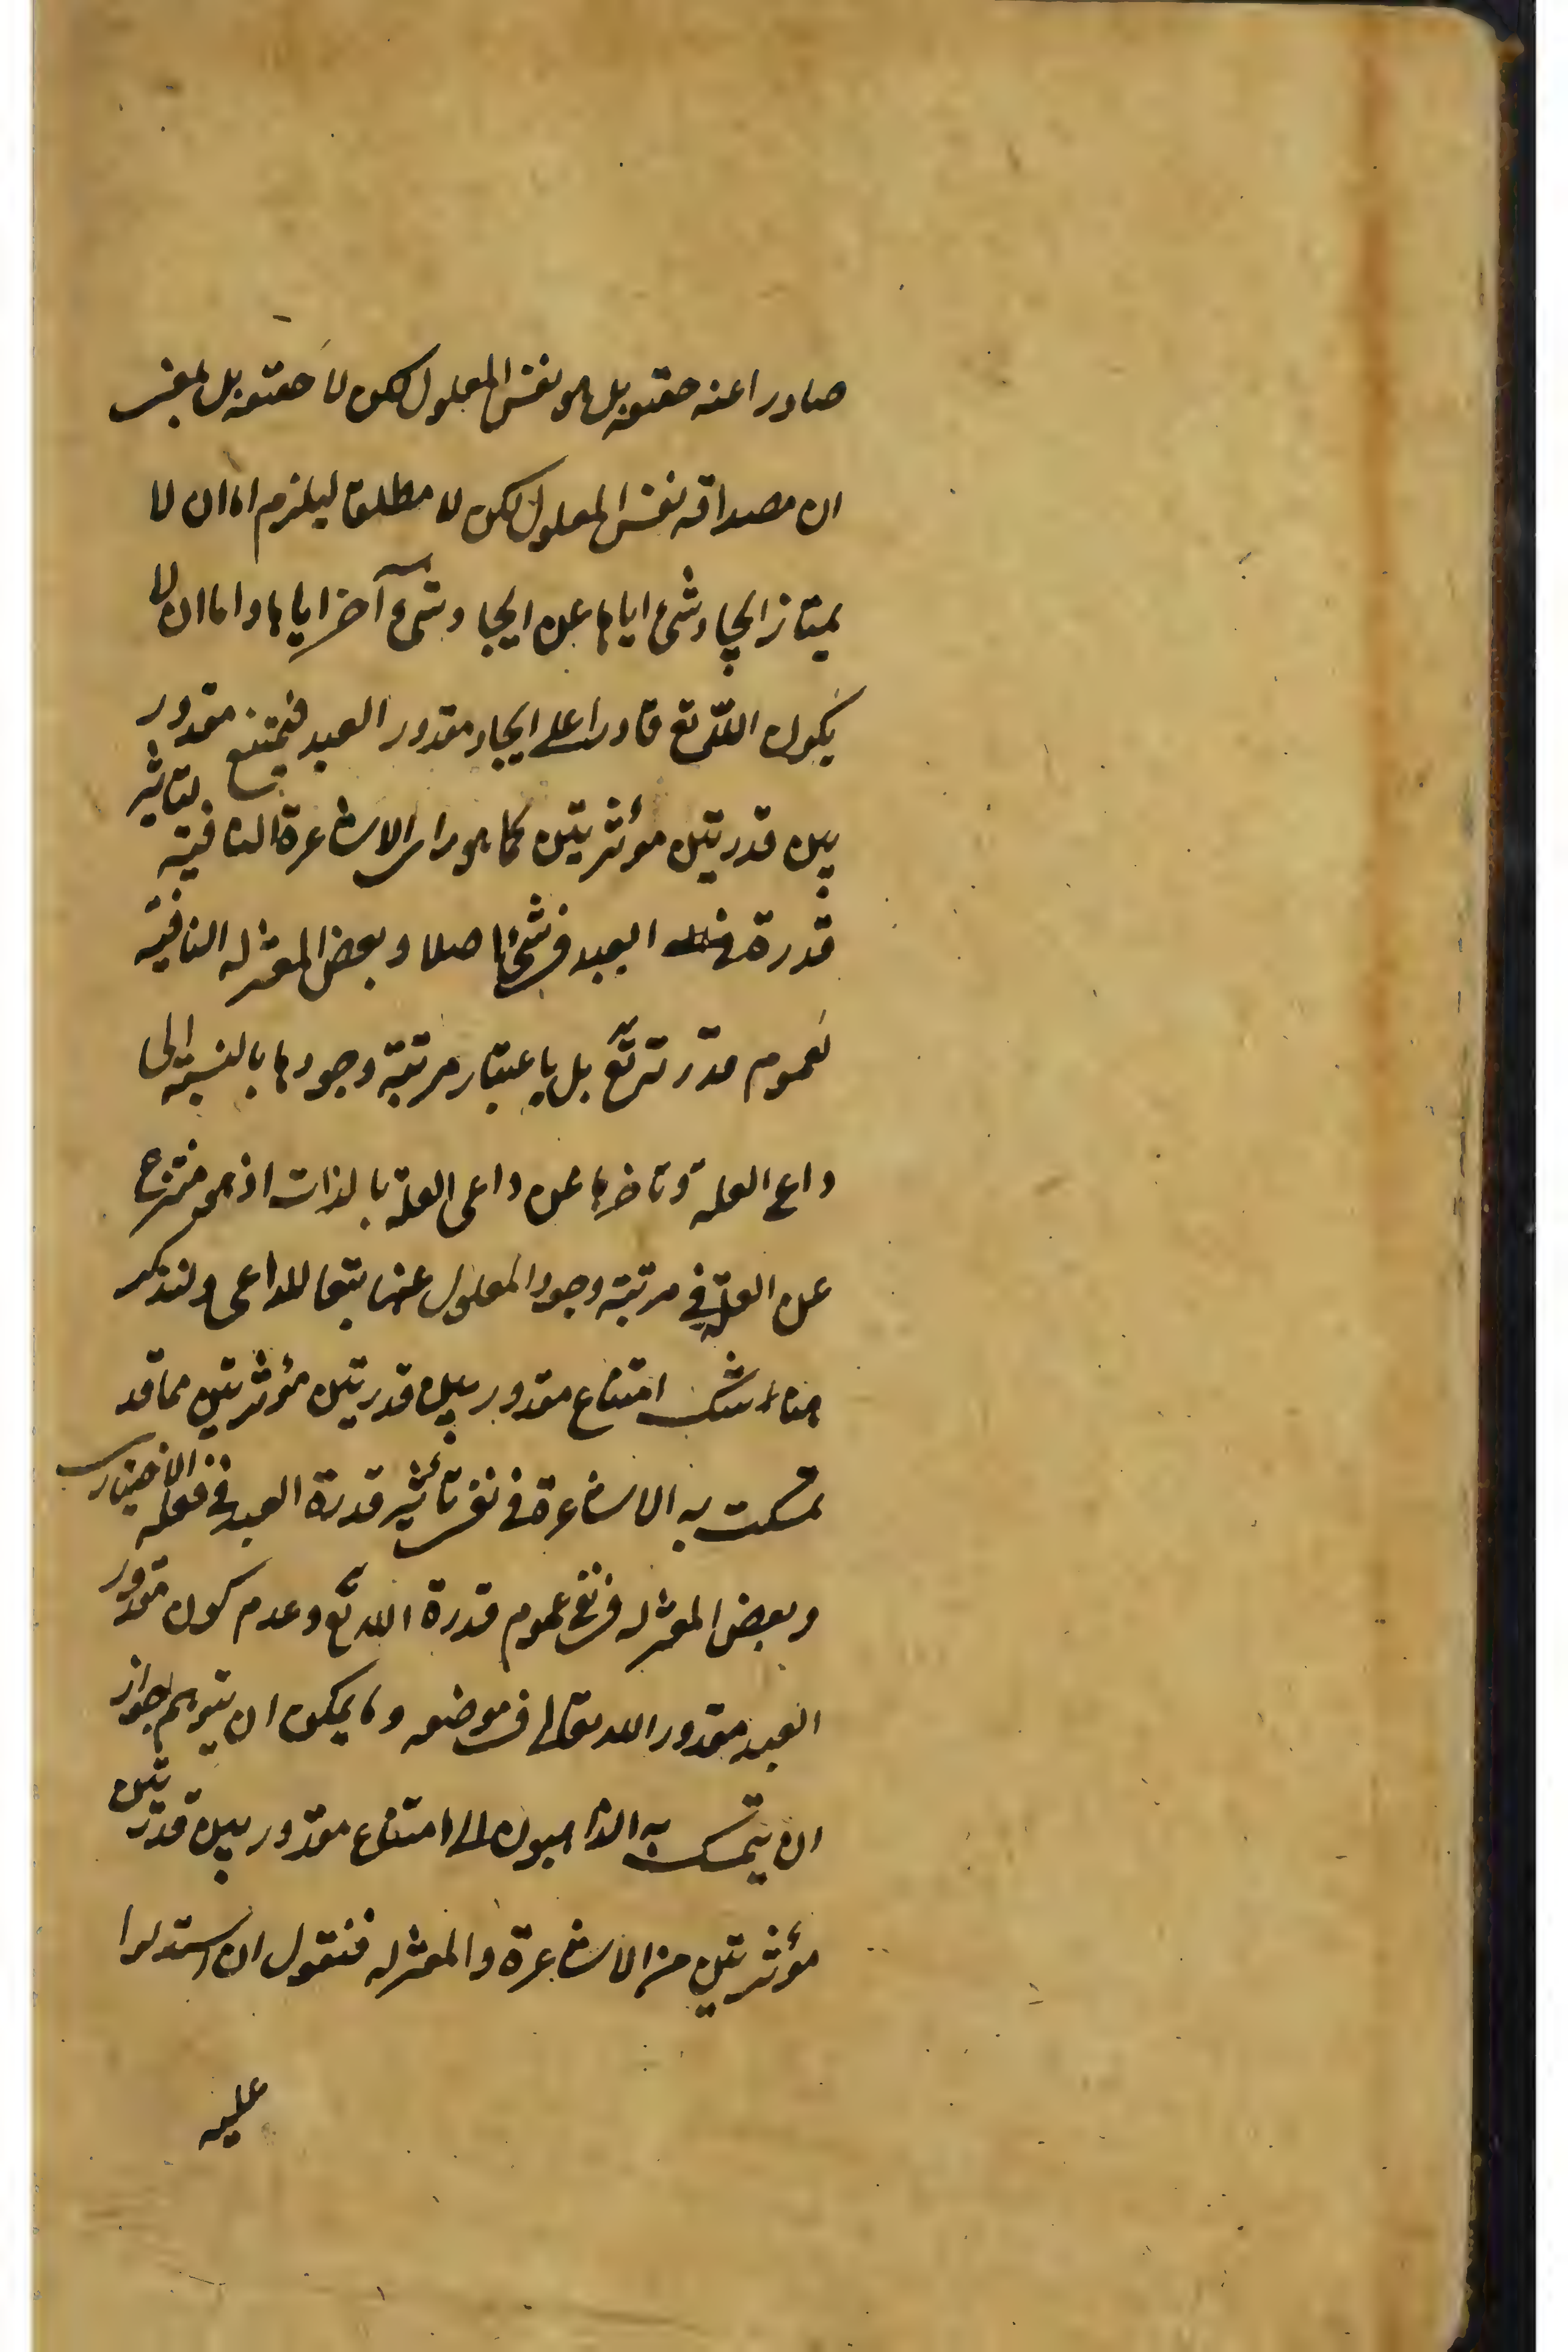 صادرا عنه حقيقة بل هو نفس المعلول لكن لا حقيقة بل بمعنى
ان مصداقه نفس المعلول لكن لا مطلقا ليلزم اما ان لا
يمتاز ايجاد شئ اياها عن ايجاد شئ آخر اياها واما ان لا
يكون اللّه تع قادرا على ايجاد مقدور العبد فيمتنع مقدور
بين قدرتين مؤثرتين كما هو راى الاشاعرة النافية لتاثير
قدرة العبد فى شئ اصلا وبعض المعتزله النافية
لعموم قدرته تع بل باعتبار مرتبة وجودها بالنسبة الى
داعى العلة وتاخرها عن داعى العلة بالذات اذ هو منتزع
عن العلة فى مرتبة وجود المعلول عنها تبعا للداعى ولنذكر
هناك امتناع مقدور بين قدرتين مؤثرتين مما قد
تمسكت به الاشاعرة فى نفى تأثير قدرة العبد فى فعله الاختيارى
وبعض المعتزله فى نفى عموم قدرة اللّه تع وعدم كون مقدور
العبد مقدور اللّه تعالى فى موضعه وما يمكن ان يتوهم جواز
ان يتمسك به الذاهبون الى امتناع مقدور بين قدرتين
مؤثرتين من الاشاعرة والمعتزله فنقول ان استدلوا
عليه